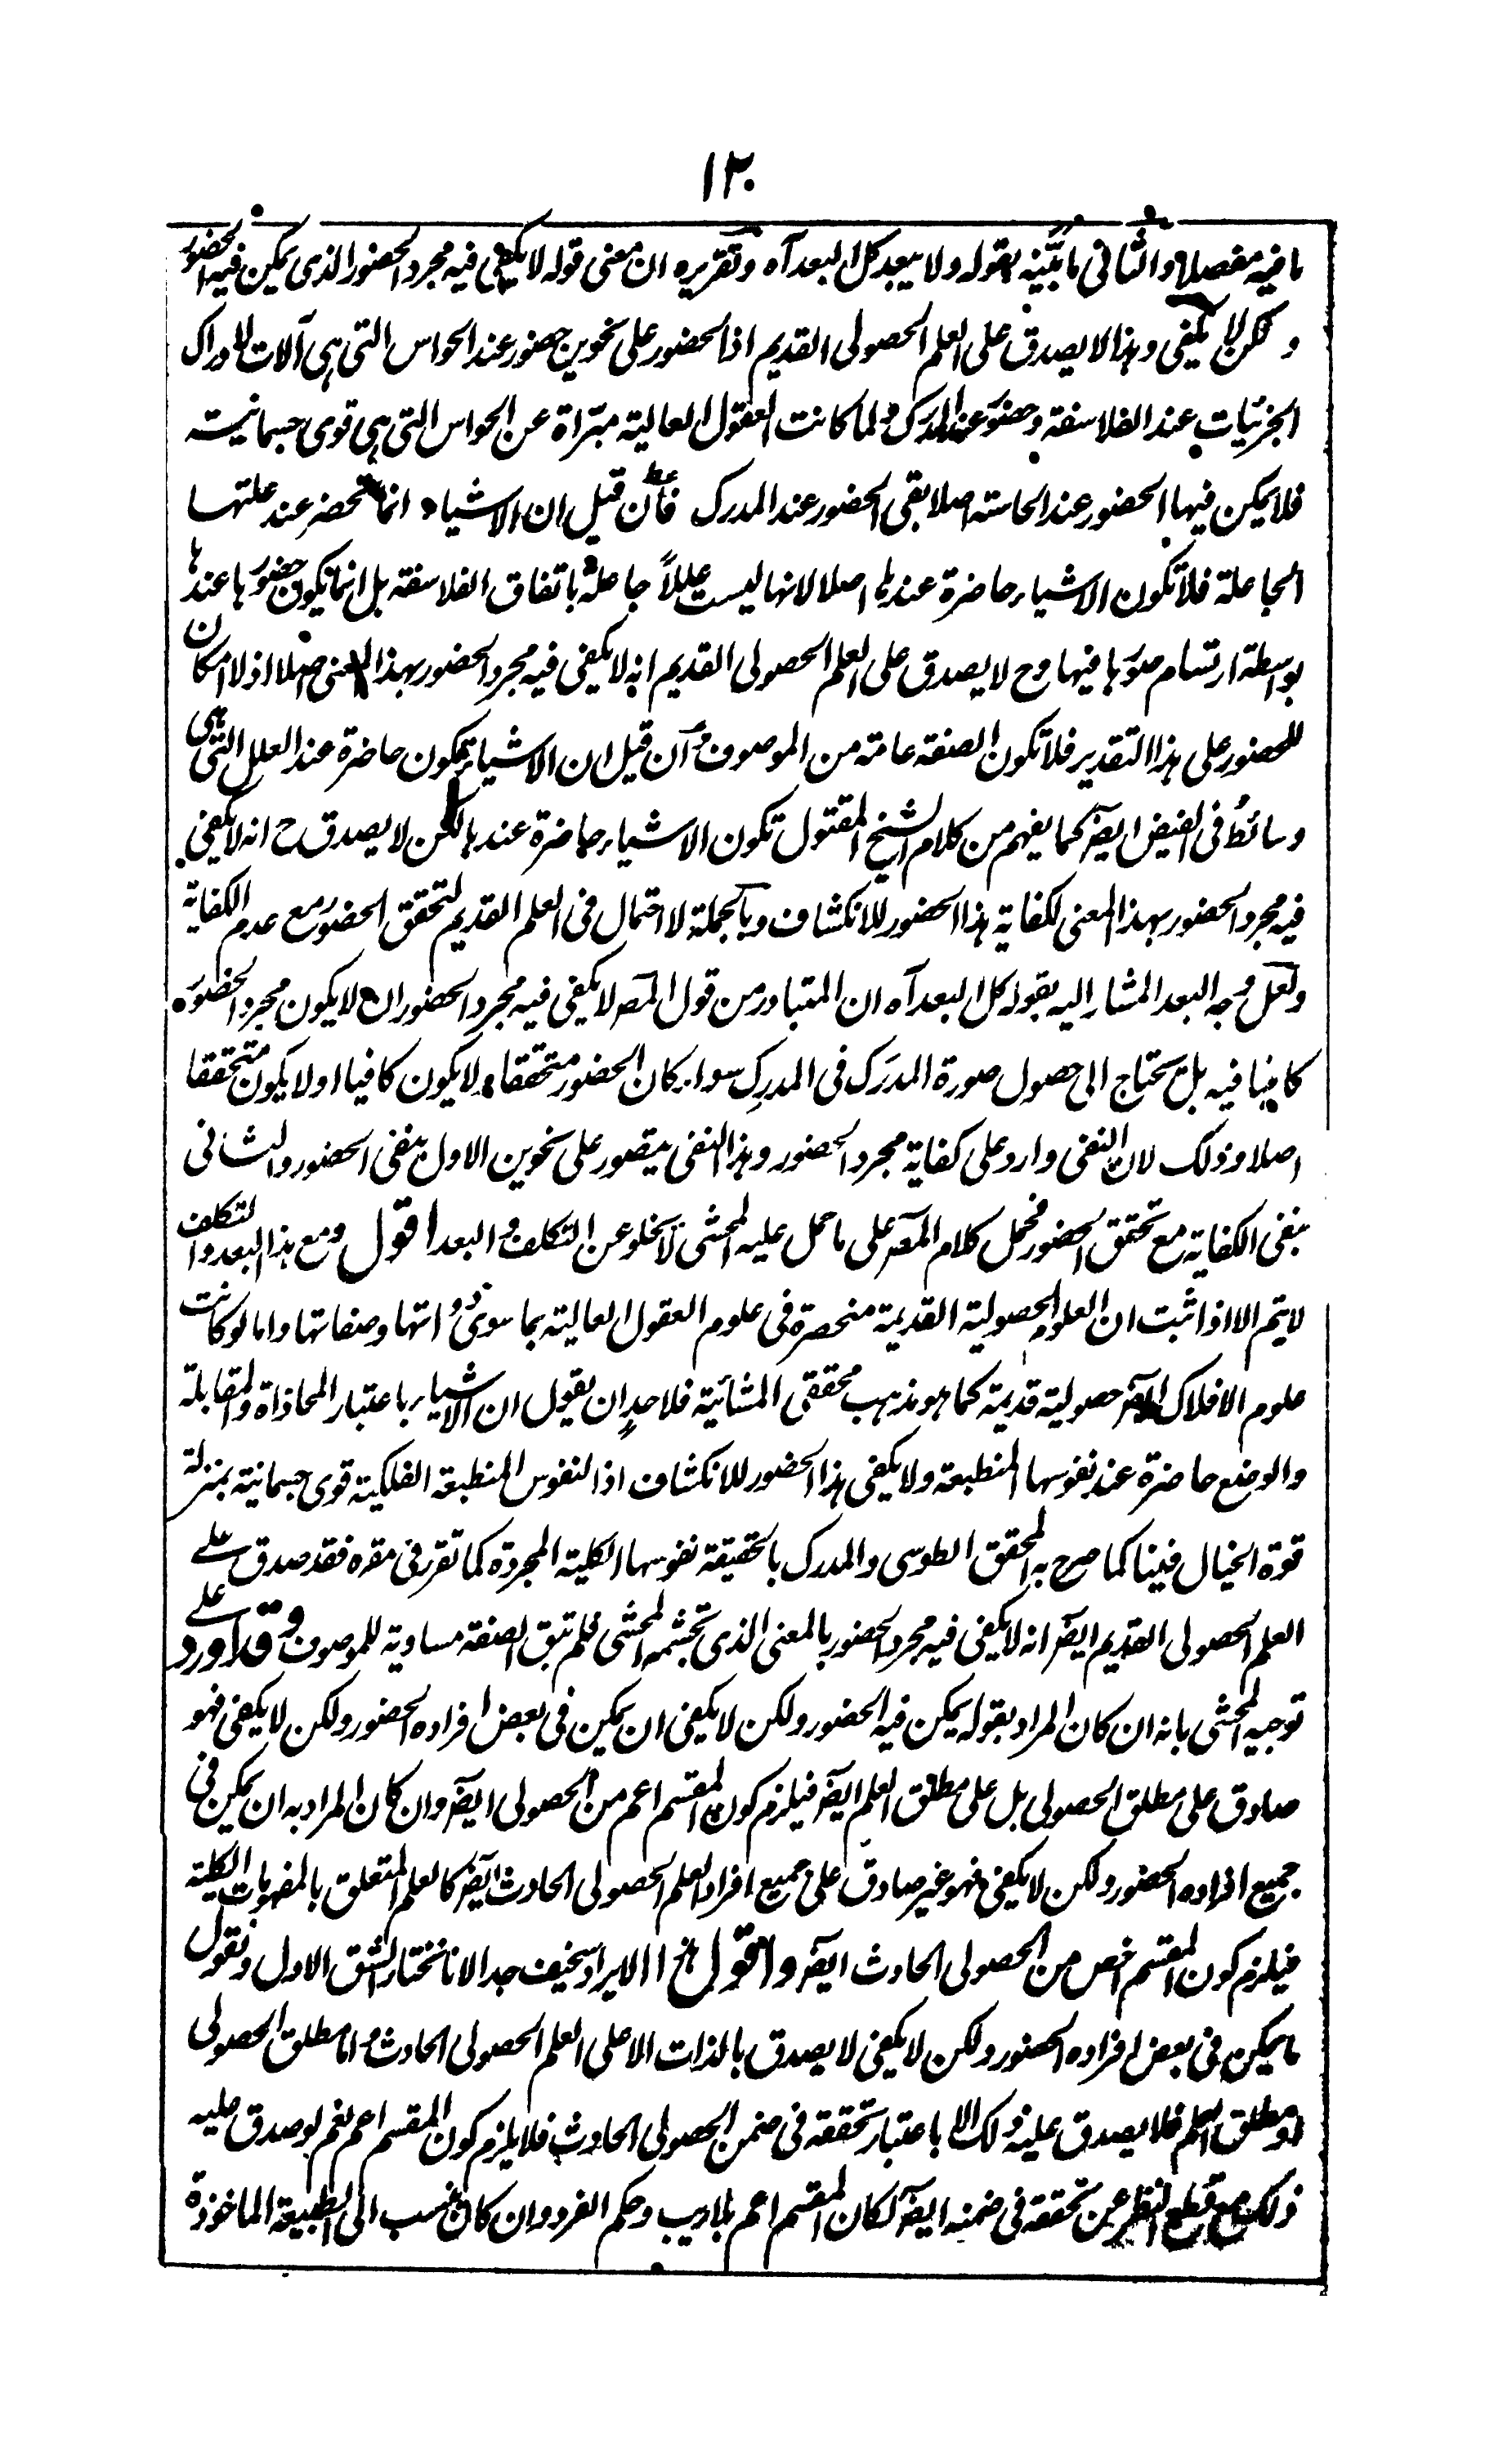 ١٣٠
ما فيه مفصلا والثانى ما بيّنه بقوله ولا يبعد كل البعد آه وتقريره ان معنى قوله لا يكفى فيه مجرد الحضور الذى يمكن فيه الحضور
ولكن لا يكفى وهذا لا يصدق على العلم الحصولى القديم اذ الحضور على نحوين حضور عند الحواس التى هى آلات لادراك
الجزئيات عند الفلاسفة وحضور عند المدرك ولما كانت العقول العالية مبرّاة عن الحواس التى هى قوى جسمانية
فلا يمكن فيها الحضور عند الحاسة اصلا بقى الحضور عند المدرك فان قيل ان الاشياء انما تحضر عند علتها
الجاعلة فلا تكون الاشياء حاضرة عندها اصلا لانها ليست عللاً جاعلة باتفاق الفلاسفة بل انما يكون حضورها عندها
بواسطة ارتسام صورها فيها وح لا يصدق على العلم الحصولى القديم انه لا يكفى فيه مجرد الحضور بهذا المعنى اصلا اذ لا امكان
للحضور على هذا التقدير فلا تكون الصفة عامة من الموصوف وان قيل ان الاشياء تكون حاضرة عند العلل التى هى
وسائط فى الفيض ايضًا كما يفهم من كلام الشيخ المقتول تكون الاشياء حاضرة عندها لكن لا يصدق ح انه لا يكفى
فيه مجرد الحضور بهذا المعنى لكفاية هذا الحضور للانكشاف وبالجملة لا احتمال فى العلم القديم لتحقق الحضور مع عدم الكفاية
ولعل وجه البعد المشار اليه بقوله كل البعد آه ان المتبادر من قول المصـ لا يكفى فيه مجرد الحضور ان لا يكون مجرد الحضور
كافيا فيه بل يحتاج الى حصول صورة المدرَك فى المدرِك سواء كان الحضور متحققا ولا يكون كافيا اولا يكون متحققا
اصلا وذلك لان النفى وارد على كفاية مجرد الحضور وهذا النفى يتصور على نحوين الاول بنفى الحضور والثانى
بنفى الكفاية مع تحقق الحضور فحمل كلام المصـ على ما حمل عليه المحشى لا يخلو عن التكلف والبعد اقول ومع هذا البعد والتكلف
لا يتم الا اذا ثبت ان العلوم الحصولية القديمة منحصرة فى علوم العقول العالية بما سوى ذواتها وصفاتها واما لو كانت
علوم الافلاك ايضًا حصولية قديمة كما هو مذهب محققى المشائية فلاحدٍ ان يقول ان الاشياء باعتبار المحاذاة والمقابلة
والوضع حاضرة عند نفوسها المنطبعة ولا يكفى هذا الحضور للانكشاف اذ النفوس المنطبعة الفلكية قوى جسمانية بمنزلة
قوة الخيال فينا كما صرح به المحقق الطوسى والمدرك بالحقيقة نفوسها الكلية المجردة كما تقرر فى مقره فقد صدق على
العلم الحصولى القديم ايضًا انه لا يكفى فيه مجرد الحضور بالمعنى الذى تجشمه المحشى فلم تبق الصفة مساوية للموصوف وقد اورد على
توجيه المحشى بانه ان كان المراد بقوله يمكن فيه الحضور ولكن لا يكفى ان يمكن فى بعض افراده الحضور ولكن لا يكفى فهو
صادق على مطلق الحصولى بل على مطلق العلم ايضًا فيلزم كون المقسم اعم من الحصولى ايضًا وان كان المراد به ان يمكن فى
جميع افراده الحضور ولكن لا يكفى فهو غير صادق على جميع افراد العلم الحصولى الحادث ايضًا كالعلم المتعلق بالمفهومات الكلية
فيلزم كون المقسم اخص من الحصولى الحادث ايضًا واقول هذا الايراد سخيف جدا لانا نختار الشق الاول ونقول
ما يمكن فى بعض افراده الحضور ولكن لا يكفى لا يصدق بالذات الا على العلم الحصولى الحادث واما مطلق الحصولى
او مطلق العلم فلا يصدق عليه ذلك الا باعتبار تحققه فى ضمن الحصولى الحادث فلا يلزم كون المقسم اعم نعم لو صدق عليه
ذلك مع قطع النظر عن تحققه فى ضمنه ايضًا لكان المقسم اعم بلا ريب وحكم الفرد وان كان ينسب الى الطبيعة الماخوذة